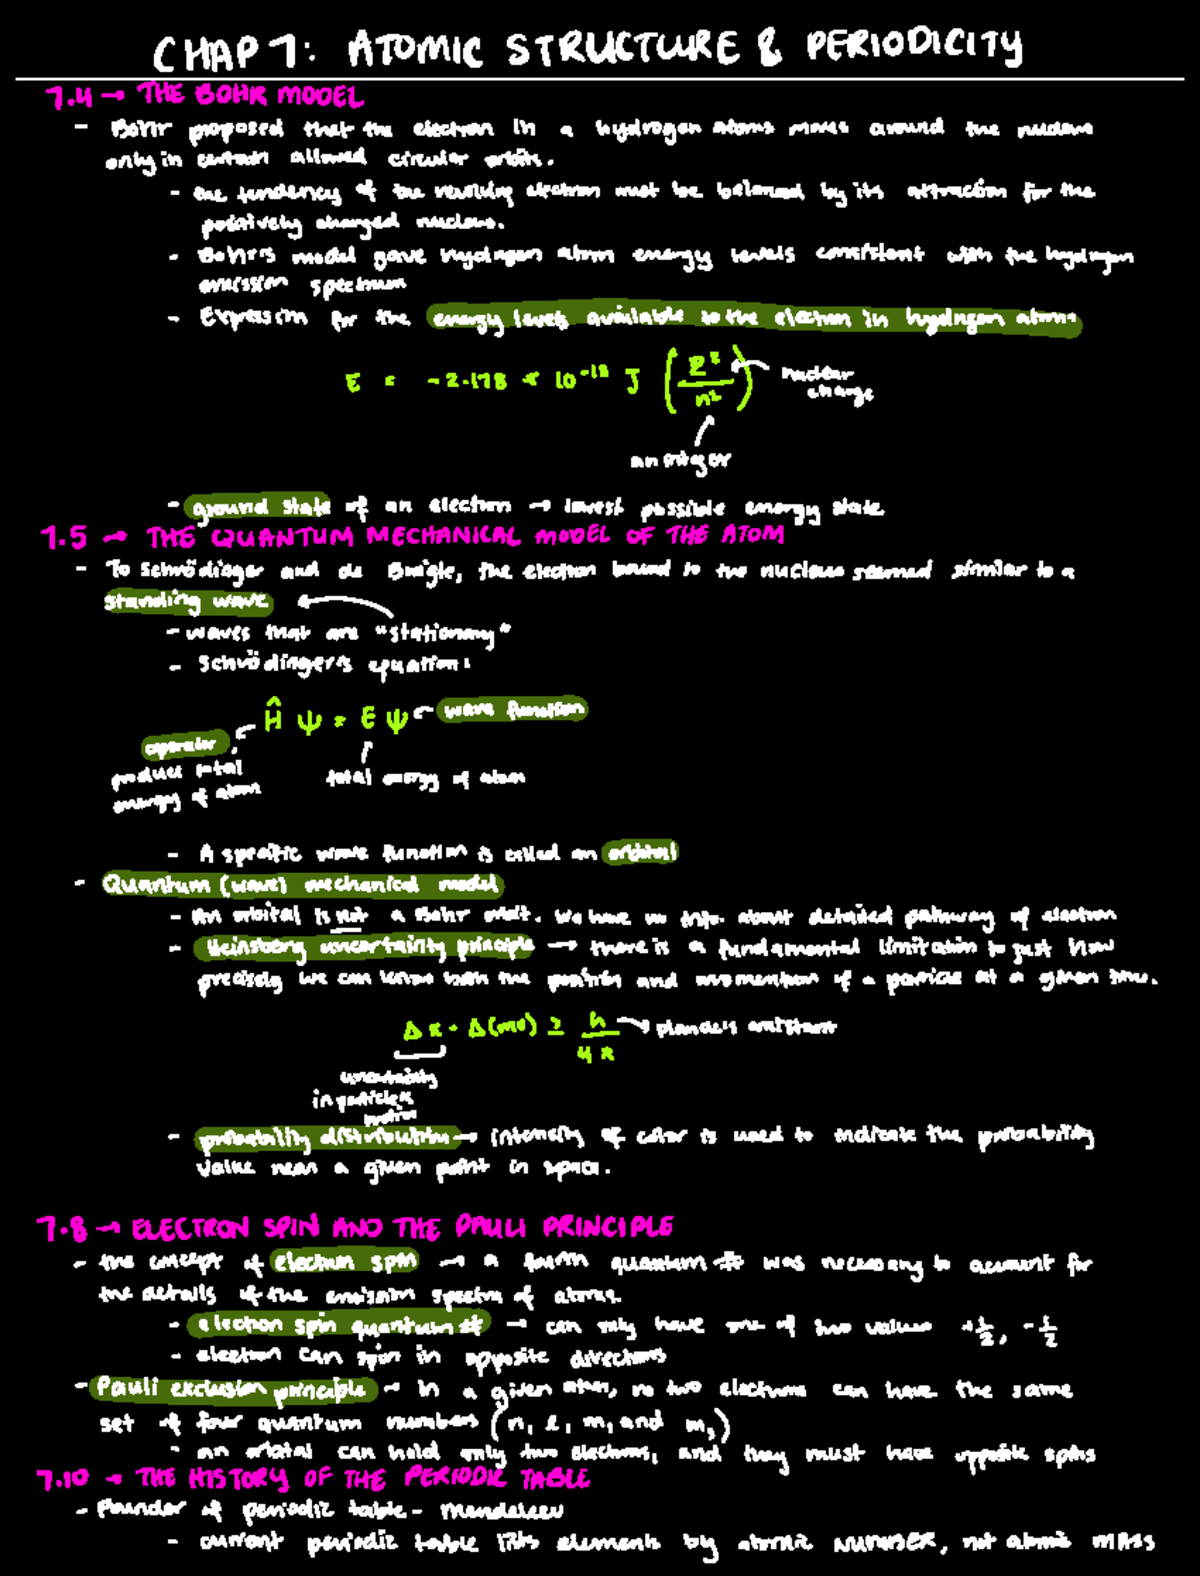 CHAP 7: ATOMIC STRUCTURE & PERIODICITY
7.4 → THE BOHR MODEL
- Bohr proposed that the electron in a hydrogen atoms moves around the nucleus
only in certain allowed circular orbits.
- the tendency of the revolving electron must be balanced by its attraction for the
positively charged nucleus.
- Bohr's model gave hydrogen atom energy levels consistent with the hydrogen
emission spectrum
- Expression for the energy levels available to the electron in hydrogen atoms
E = -2.178 × 10⁻¹⁸ J (Z²/n²) ← nuclear
charge
an integer
- ground state of an electron → lowest possible energy state
7.5 → THE QUANTUM MECHANICAL MODEL OF THE ATOM
- To Schrödinger and de Broglie, the electron bound to the nucleus seemed similar to a
standing wave
- waves that are "stationary"
- Schrödinger's equation:
Ĥ ψ = E ψ ← wave function
operator
produce total
energy of atom
total energy of atom
- A specific wave function is called an orbital
- Quantum (wave) mechanical model
- An orbital is not a Bohr orbit. We have no info. about detailed pathway of electron
- Heisenberg uncertainty principle → there is a fundamental limitation to just how
precisely we can know both the position and momentum of a particle at a given time.
Δx · Δ(mv) ≥ h/4π → planck's constant
uncertainty
in particle's
- probability distribution → intensity of color is used to indicate the probability
value near a given point in space.
7.8 → ELECTRON SPIN AND THE PAULI PRINCIPLE
- the concept of electron spin → a fourth quantum # was necessary to account for
the details of the emission spectra of atoms.
- electron spin quantum # → can only have one of two values +1/2, -1/2
- electron can spin in opposite directions
- Pauli exclusion principle → in a given atom, no two electrons can have the same
set of four quantum numbers (n, l, mₗ and mₛ)
- an orbital can hold only two electrons, and they must have opposite spins
7.10 → THE HISTORY OF THE PERIODIC TABLE
- Founder of periodic table - Mendeleev
- current periodic table lists elements by atomic NUMBER, not atomic MASS